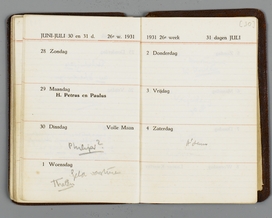 JUNI-JULI 30 en 31 d. 26e w. 1931
28 Zondag
29 Maandag
H. Petrus en Paulus
30 Dinsdag Volle Maan
1 Woensdag
1931 26e week 31 dagen JULI
2 Donderdag
3 Vrijdag
4 Zaterdag